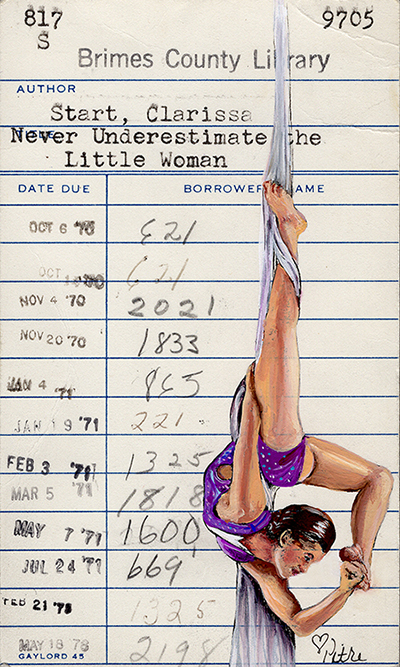 817 9705
S
Brimes County Library
AUTHOR
Start, Clarissa
TITLE
Never Underestimate the
Little Woman
DATE DUE BORROWER'S NAME
OCT 6 '70 621
OCT 621
NOV 4 '70 2021
NOV 20 '70 1833
JAN 4 '71 865
JAN 19 '71 221
FEB 3 '71 1325
MAR 5 '71 1818
MAY 7 '71 1600
JUL 24 '71 669
FEB 21 '78 1325
MAY 18 78 2198
GAYLORD 45
Petre